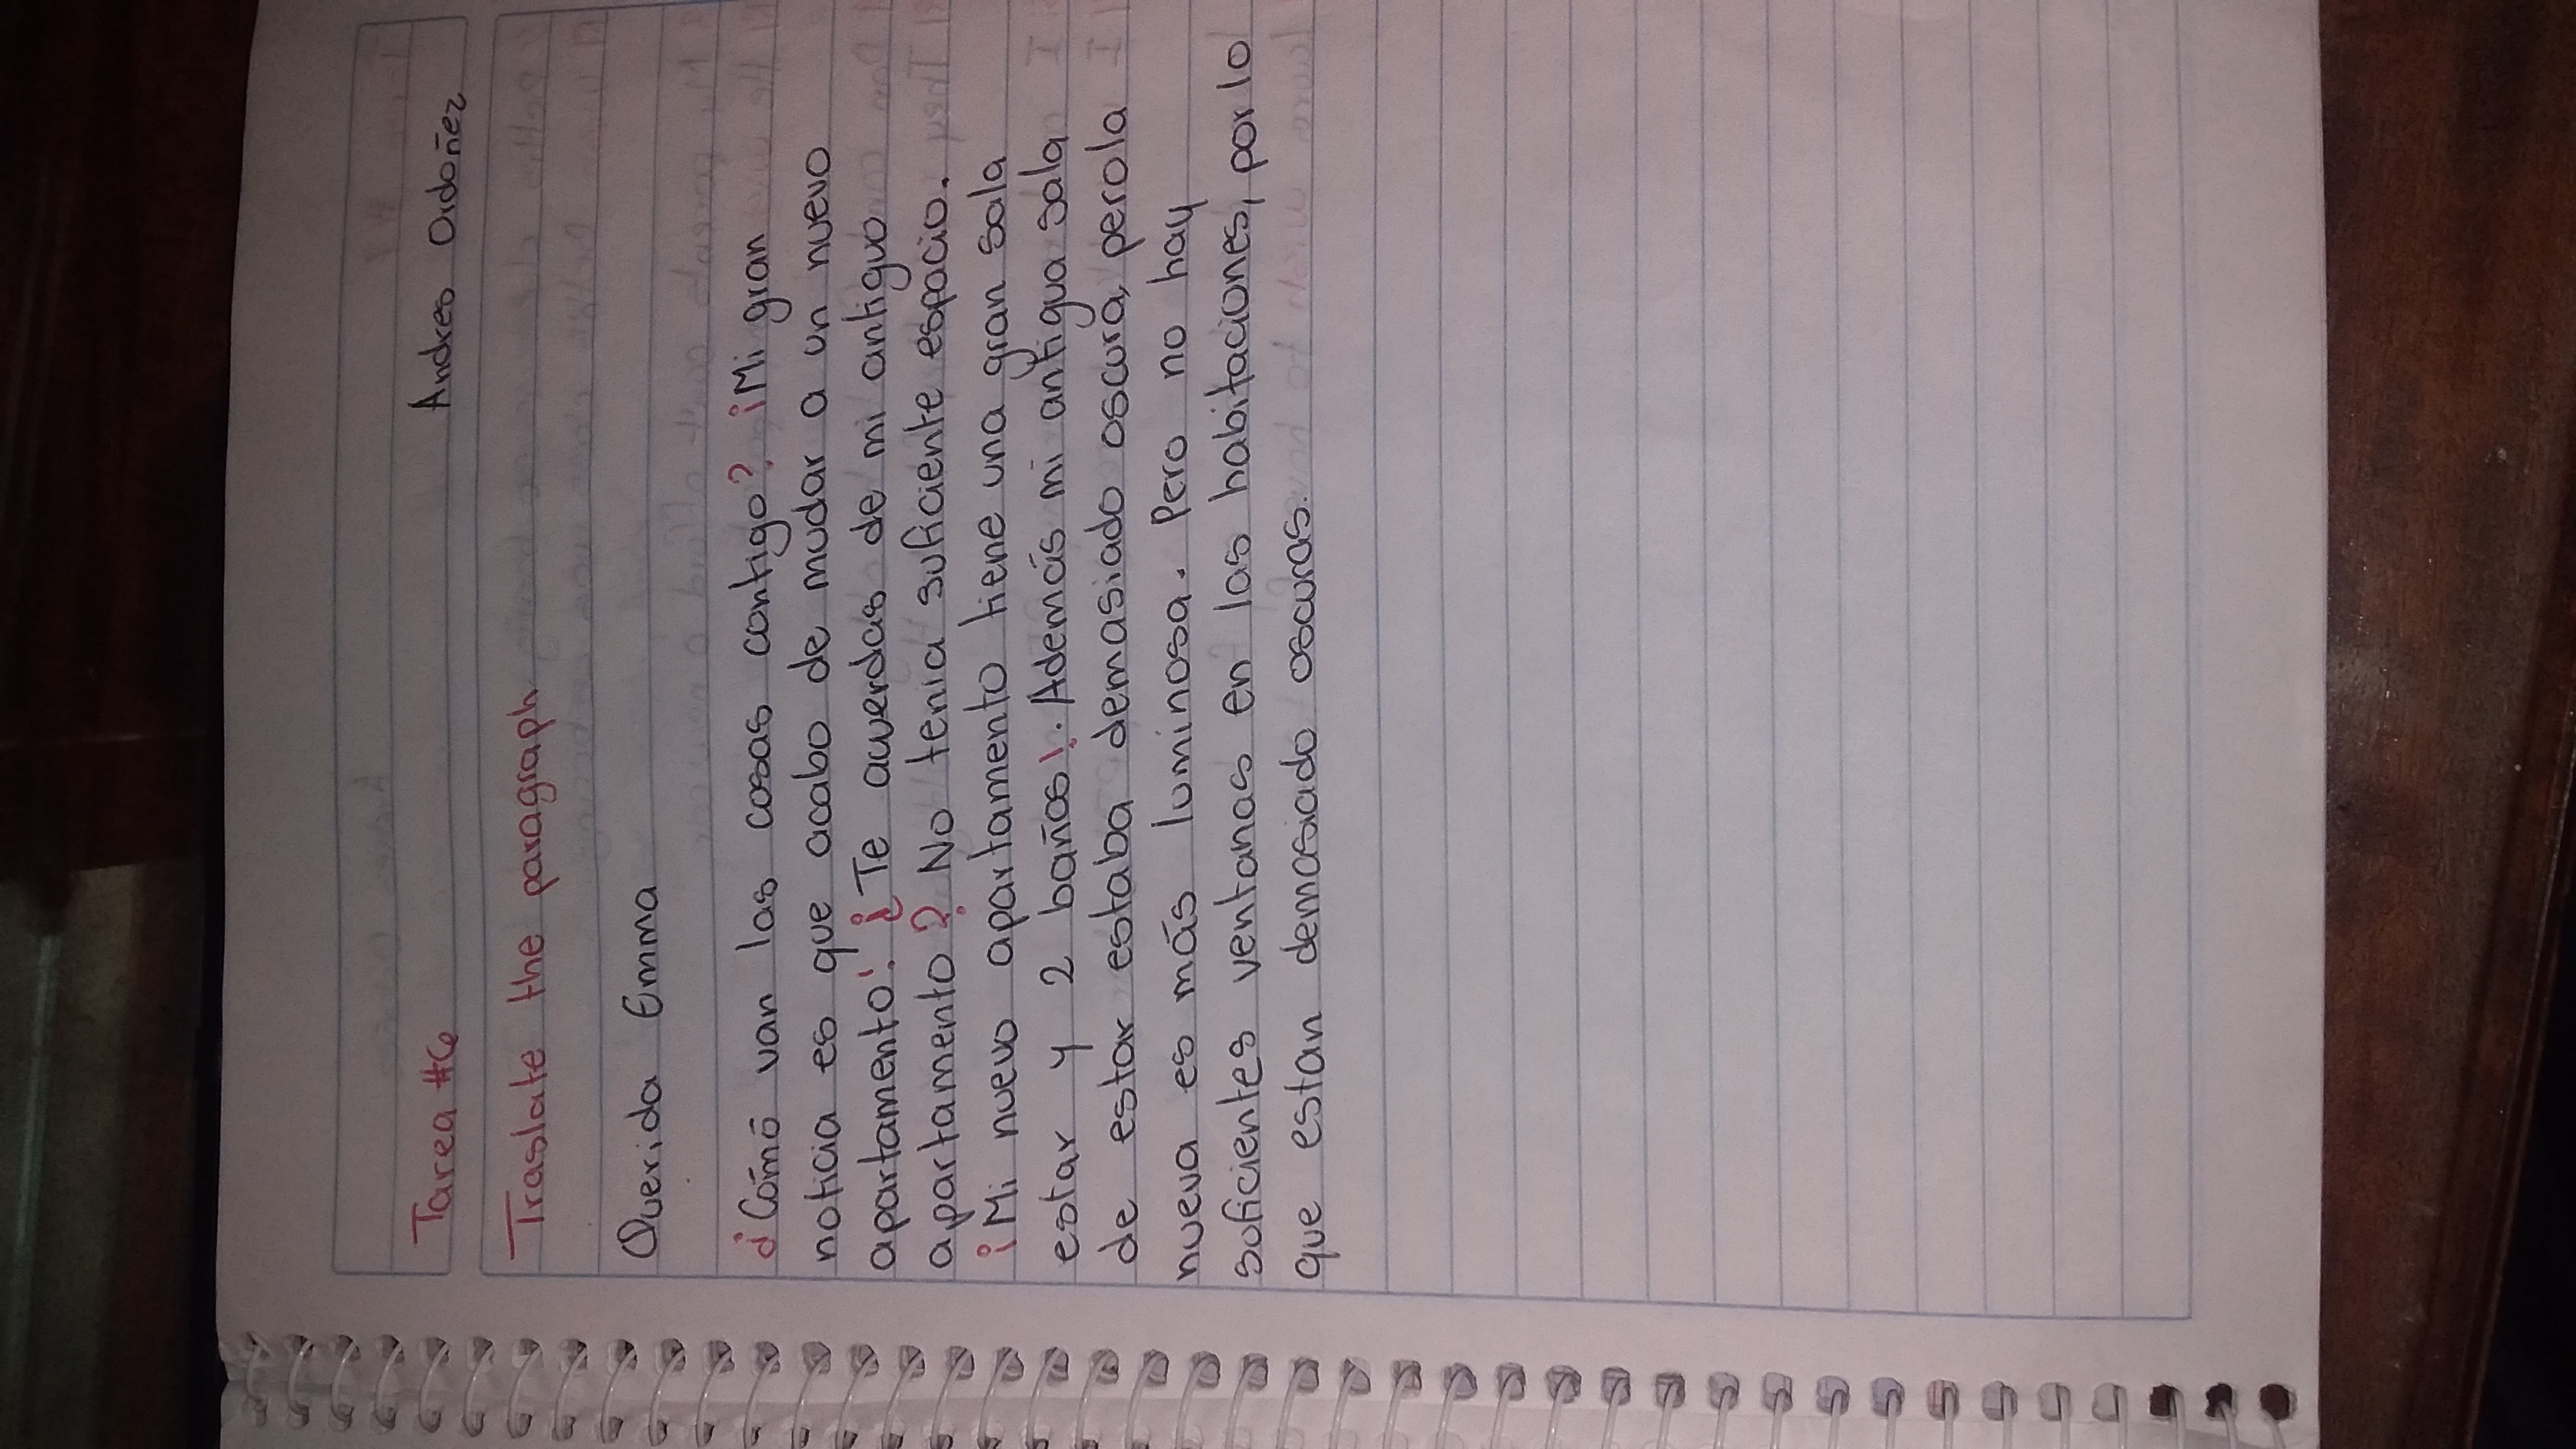 Tarea #6
Andres Ordoñez
Traslate the paragraph
Querida Emma
¿Cómó van las cosas contigo? ¡Mi gran
noticia es que acabo de mudar a un nuevo
apartamento!. ¿Te acuerdas de mi antiguo
apartamento? No tenia suficiente espacio.
¡Mi nuevo apartamento tiene una gran sala
estar y 2 baños!. Además mi antigua sala
de estar estaba demasiado oscura, pero la
nueva es más luminosa. Pero no hay
suficientes ventanas en las habitaciones, por lo
que estan demasiado oscuras.